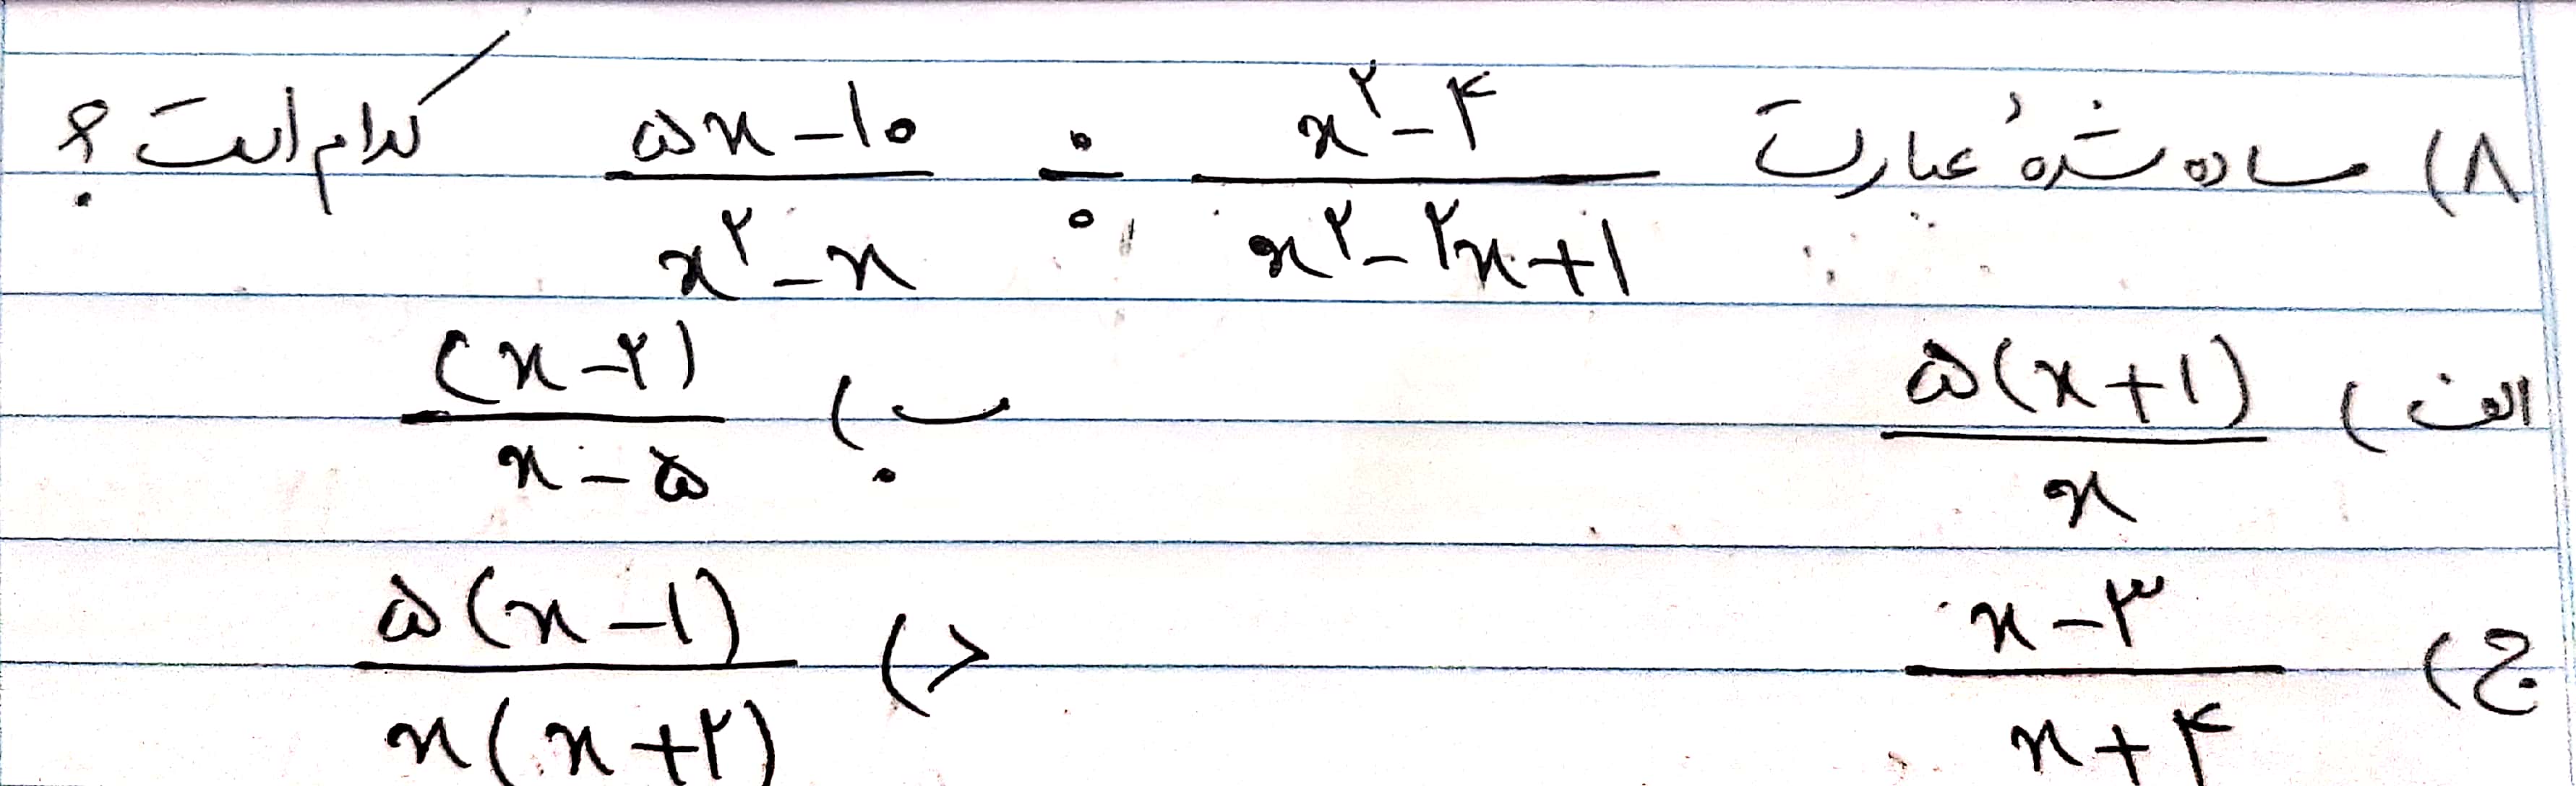 ۸) ساده شدهٔ عبارت (۵x - ۱۰)/(x^۲ - x) ÷ (x^۲ - ۴)/(x^۲ - ۲x + ۱) کدام است؟
الف) ۵(x + ۱)/x ب) (x - ۲)/(x - ۵)
ج) (x - ۳)/(x + ۴) د) ۵(x - ۱)/(x(x + ۲))